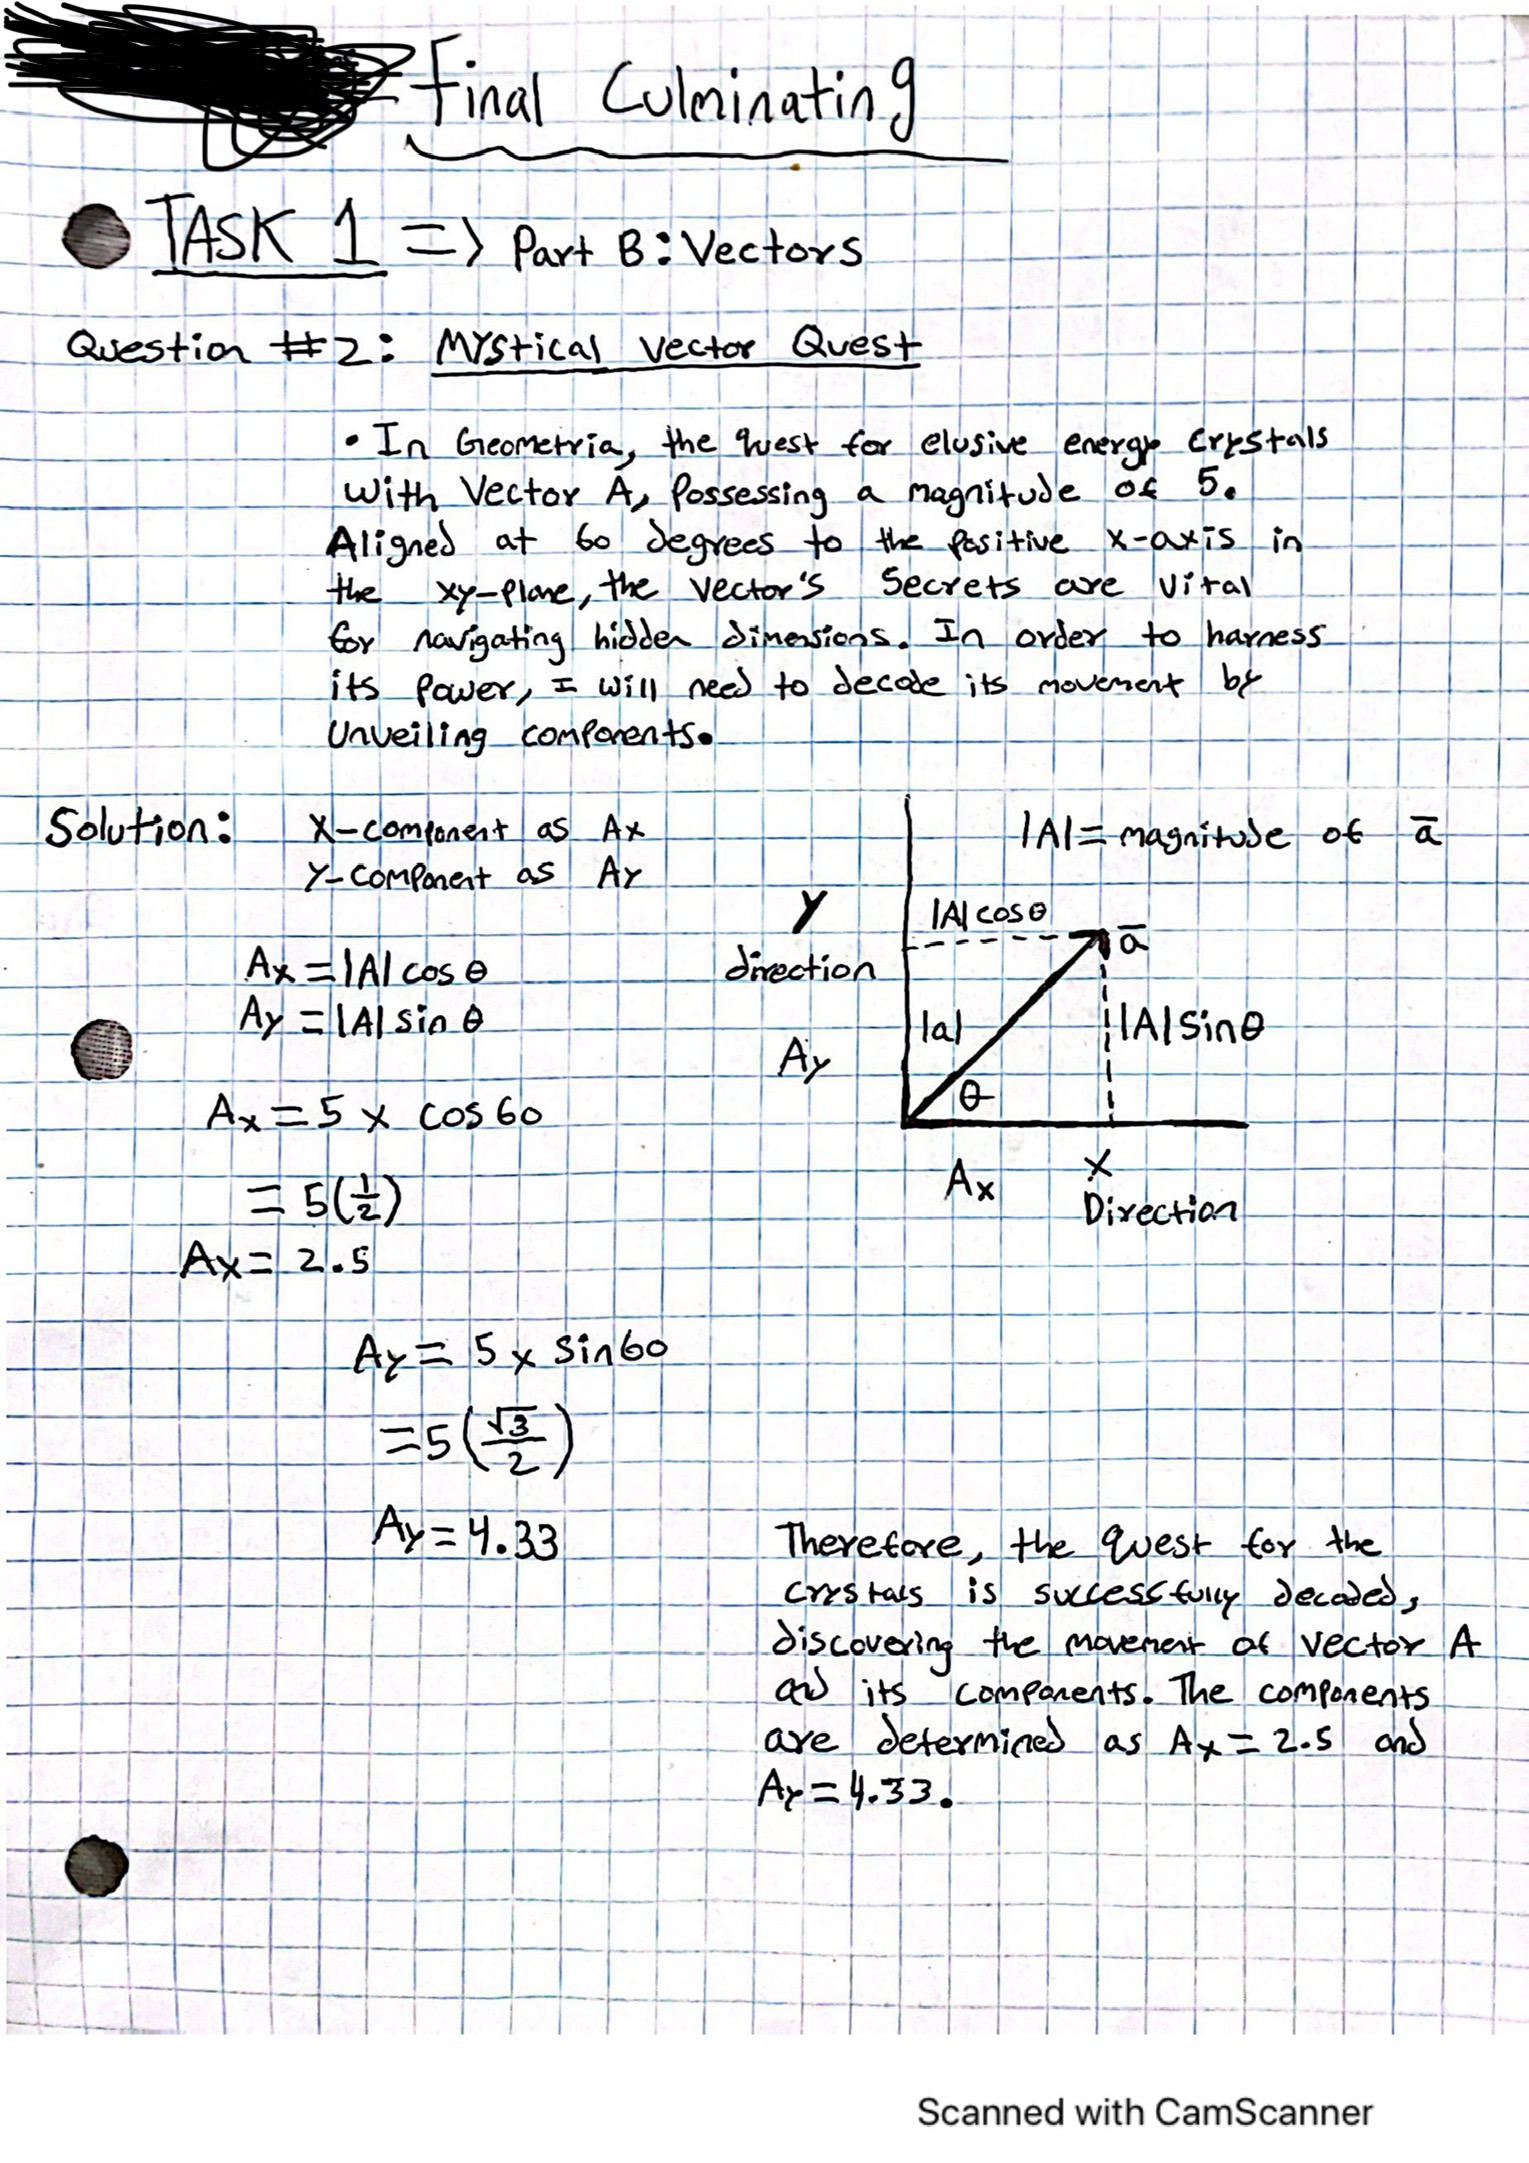 Final Culminating
TASK 1 => Part B: Vectors
Question #2: Mystical Vector Quest
• In Geometria, the quest for elusive energy crystals
with Vector A, Possessing a magnitude of 5.
Aligned at 60 degrees to the positive x-axis in
the xy-plane, the vector's secrets are vital
for navigating hidden dimensions. In order to harness
its power, I will need to decode its movement by
Unveiling components.
Solution:
X-component as Ax
Y-component as Ay
Ax = |A| cos θ
Ay = |A| sin θ
Ax = 5 x cos 60
= 5(1/2)
Ax = 2.5
Ay = 5 x sin60
= 5(√3/2)
Ay = 4.33
|A| = magnitude of a̅
Y
direction
Ay
|A| cos θ
a̅
|a|
|A| sin θ
θ
Ax
X
Direction
Therefore, the quest for the
crystals is successfully decoded,
discovering the movement of vector A
and its components. The components
are determined as Ax = 2.5 and
Ay = 4.33.
Scanned with CamScanner